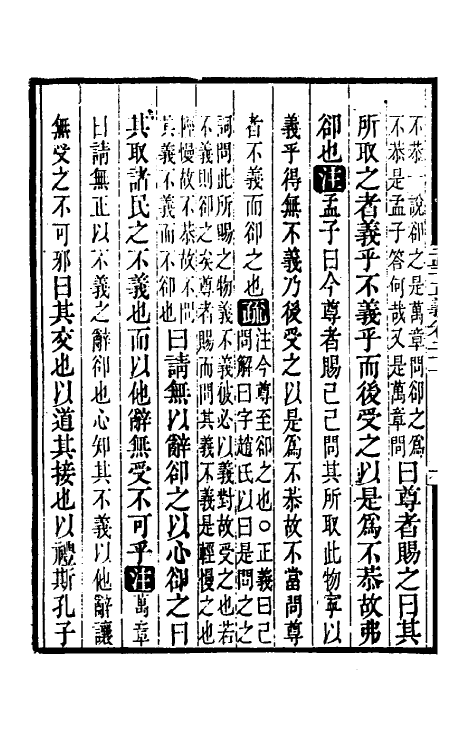 不恭一說卻之是萬章問卻之爲
不恭是孟子答何哉又是萬章問
曰尊者賜之曰其
所取之者義乎不義乎而後受之以是爲不恭故弗
卻也注孟子曰今尊者賜己己問其所取此物寧以
義乎得無不義乃後受之以是爲不恭故不當問尊
者不義而卻之也疏
注今尊至卻之也○正義曰己
問解曰字趙氏以曰是問之之
詞問此所賜之物義不義彼必以義對故受之也若
不義則卻之矣尊者賜而問其義不義是輕慢之也
慢故不恭故不問
其義不義而不卻也
曰請無以辭卻之以心卻之曰
其取諸民之不義也而以他辭無受不可乎注萬章
曰請無正以不義之辭卻也心知其不義以他辭讓
無受之不可邪曰其交也以道其接也以禮斯孔子